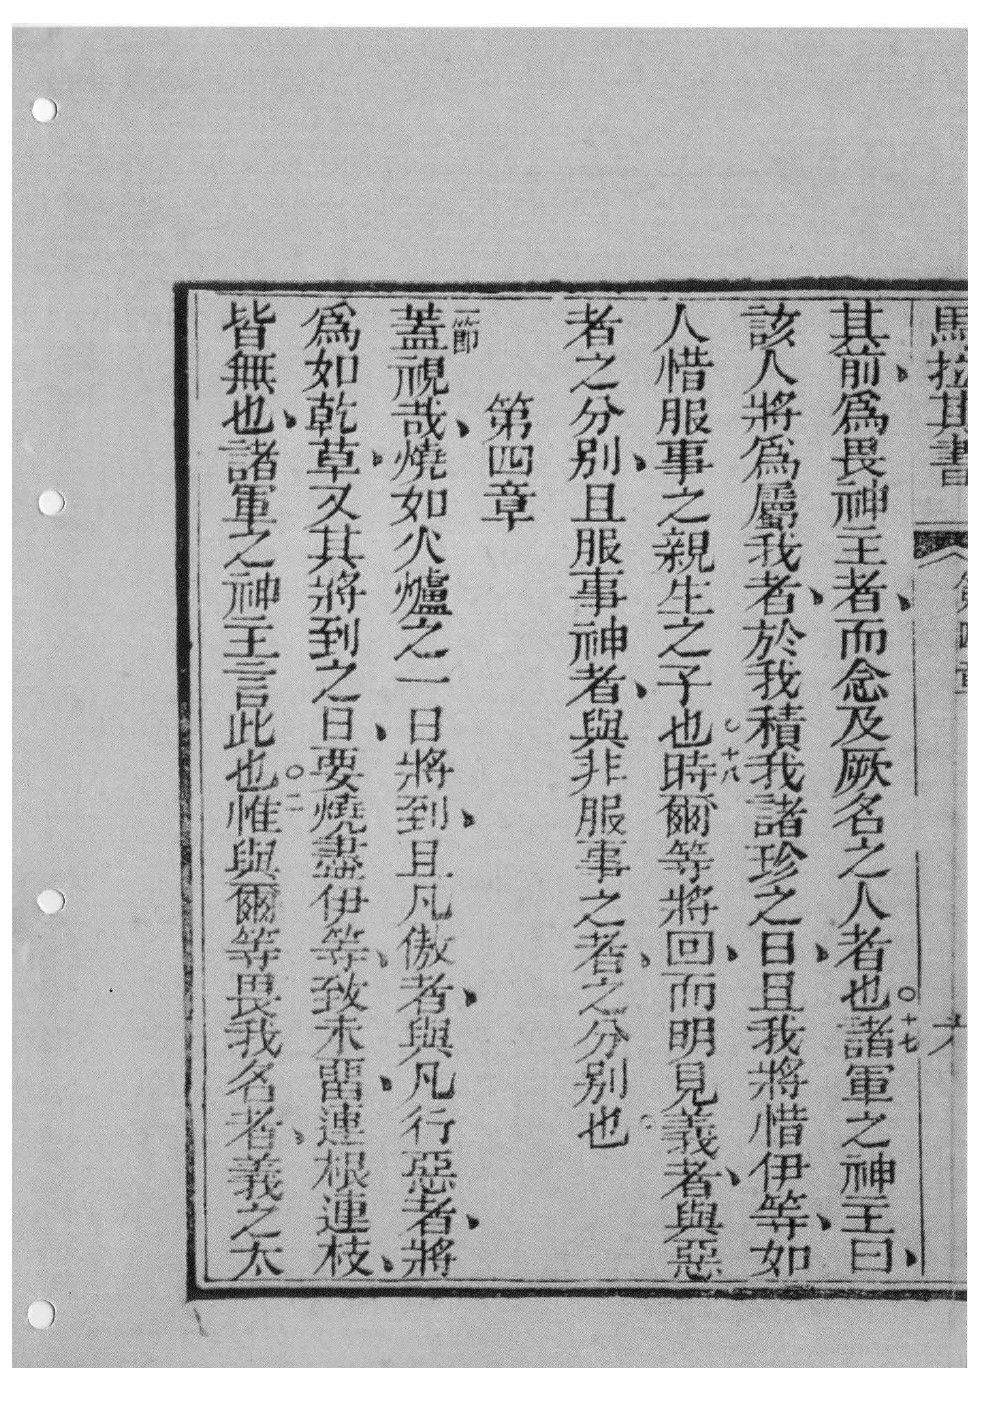 馬拉其書 第四章 六
其前、爲畏神主者、而念及厥名之人者也○十七諸軍之神主曰、
該人將爲屬我者、於我積我諸珍之日、且我將惜伊等、如
人惜服事之親生之子也○十八時爾等將回、而明見義者、與惡
者之分别、且服事神者、與非服事之者、之分别也○
第四章
一節蓋視哉、燒如火爐之一日將到、且凡傲者、與凡行惡者、將
爲如乾草、又其將到之日、要燒盡伊等、致未畱、連根連枝、
皆無也、諸軍之神主言此也○二惟與爾等畏我名者、義之太